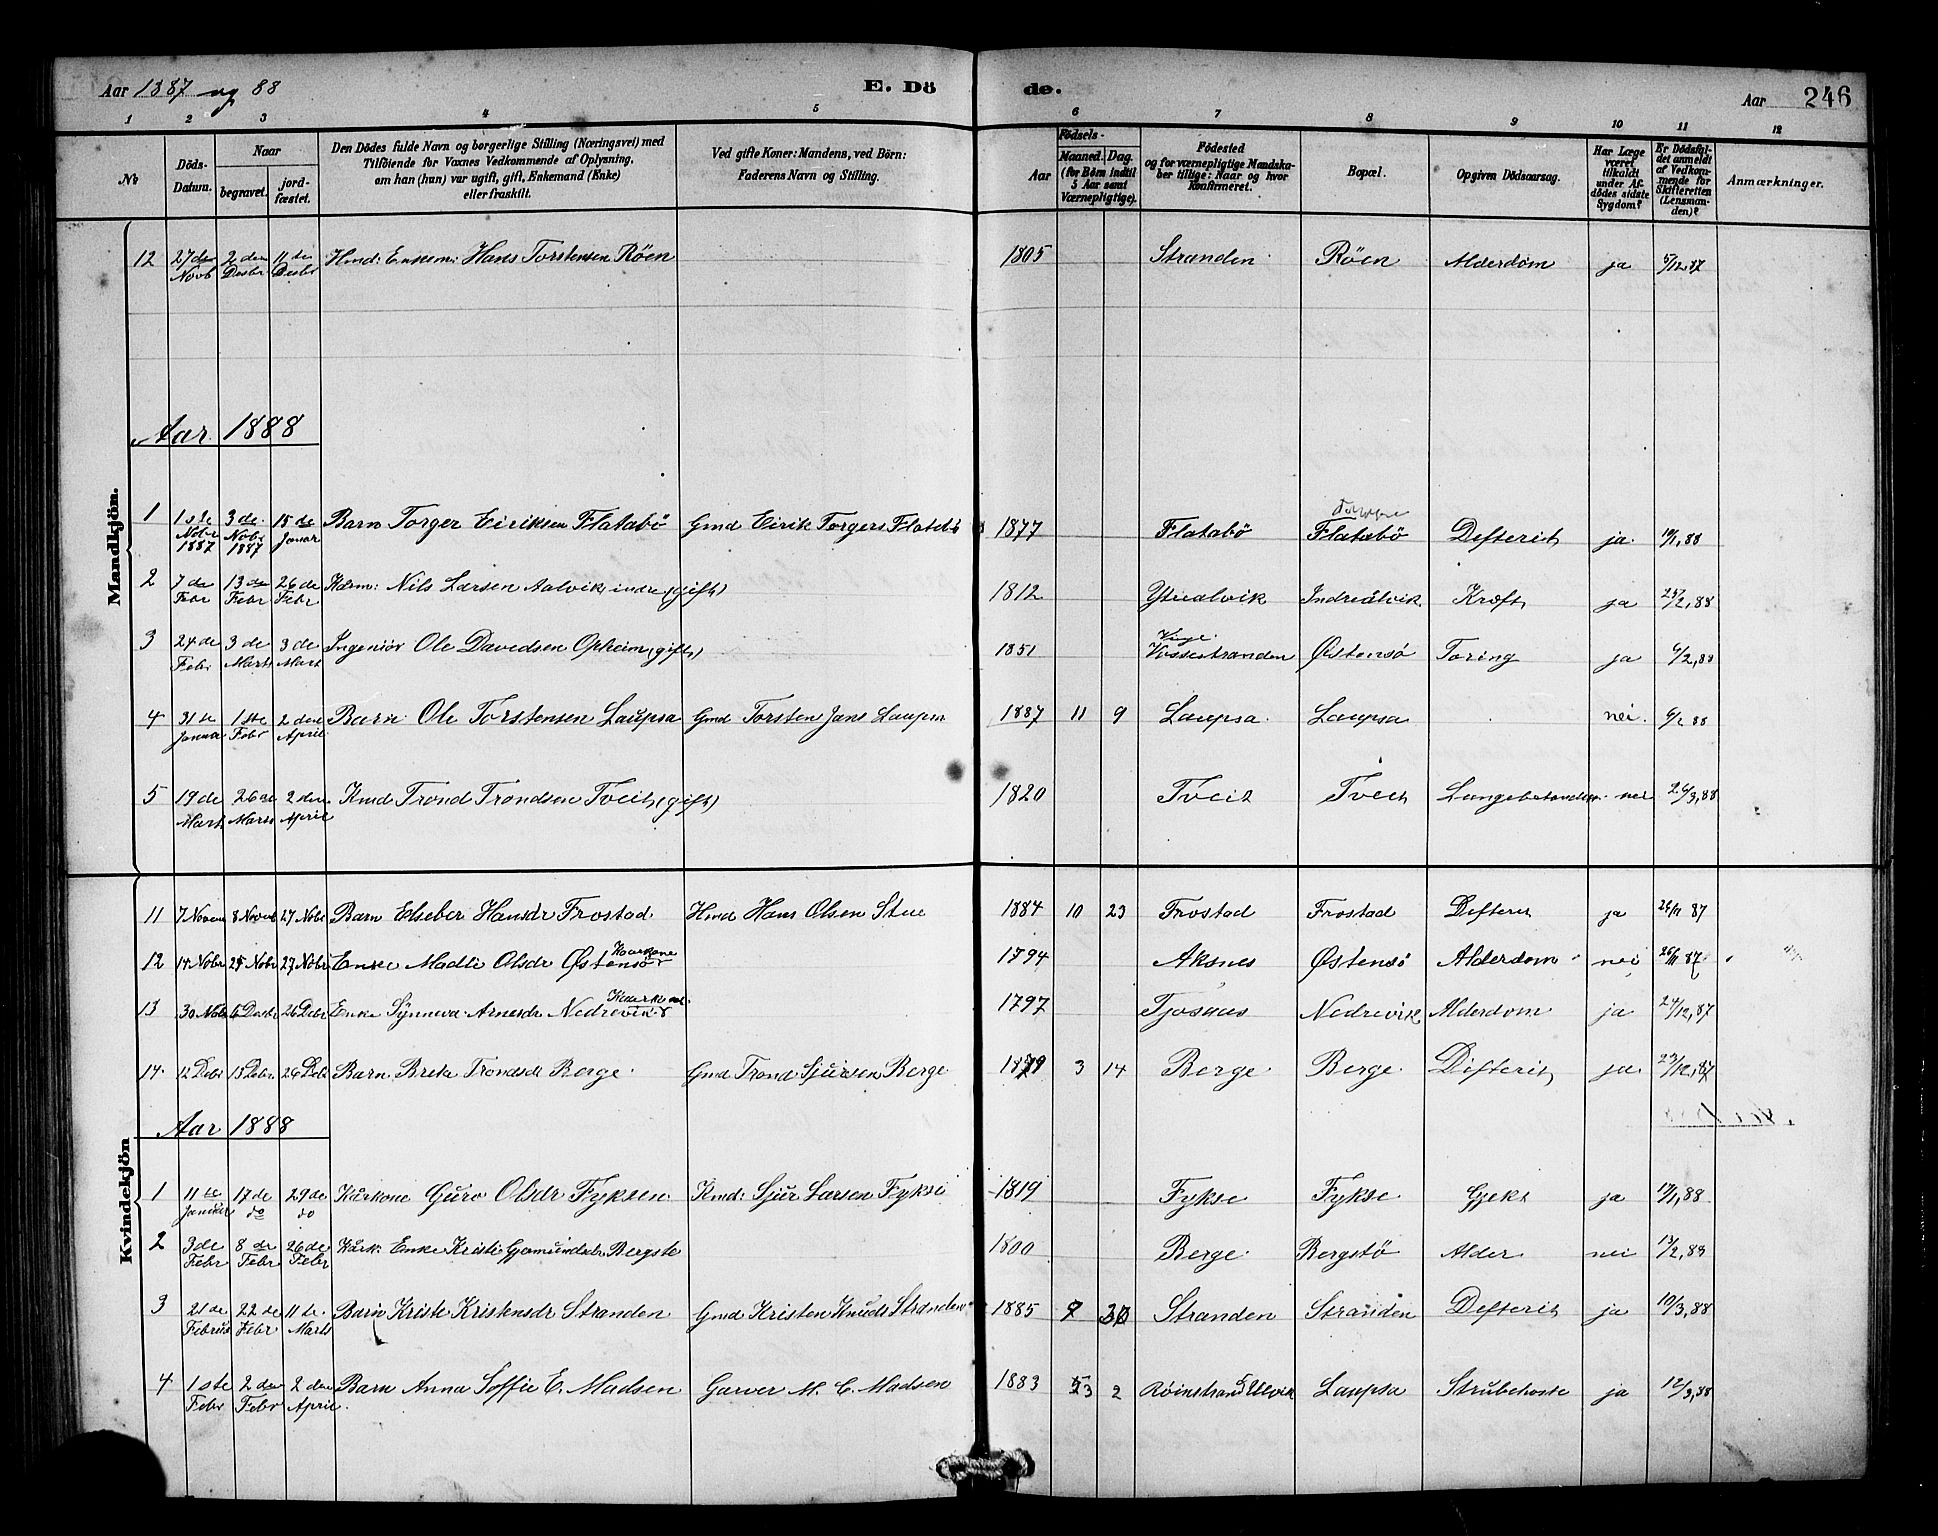 Aar 1887 og 88 E. Dö de. Aar 246
1 2 3 4 5 6 7 8 9 10 11 12
No Döds-Datum. Naar begravet. jordfæstet. Den Dödes fulde Navn og borgerlige Stilling (Næringsvei) med Tilföiende for Voxnes Vedkommende af Oplysning, om han (hun) var ugift, gift, Enkemand (Enke) eller fraskilt. Ved gifte Koner: Mandens, ved Börn: Faderens Navn og Stilling. Födsels- Aar Maaned. Dag. (for Börn indtil 5 Aar samt Værnepligtige). Födested og for værnepligtige Mandskaber tillige: Naar og hvor konfirmeret. Bopæl. Opgiven Dödsaarsag. Har Læge været tilkaldt under Afdödes sidste Sygdom? Er Dödsfaldet anmeldt af Vedkommende for Skifteretten (Lensmanden)? Anmærkninger.
Mandkjön.
12 27de Novb 2den Desbr 11te Desbr Hmd: Enkem: Hans Torstensen Röen 1805 Stranden Röen Alderdom ja 5/12,87
Aar 1888
1 1ste Nobr 1887 3de Nobr 1887 15de Janar Barn Torger Eiriksen Flatabö Gmd Eirik Torgers Flatebö 1877 Flatabö Flatabö Defterit ja 19/1,88
2 7de Febr 13de Febr 26de Febr Nils Larsen Aalvik indre (gift) 1812 Ytrealvik Indreålvik Kræft ja 25/2,88
3 24de Febr 3de Marts 3de Mart Ingeniör Ole Davidsen Opheim (gift) 1851 Vinje Vossestranden Østensö Tæring ja 6/2,88
4 31te Januar 1ste Febr 2den April Barn Ole Torstensen Laupsa Gmd Torsten Jans Laupsa 1887 11 9 Laupsa Laupsa nei 6/2 88
5 19de Mart 26de Marts 2den April Kmd Trond Trondsen Tveit (gift) 1820 Tveit Tveit nei 26/3,88
Kvindekjön
11 7 Novem 8 Novb 27 Nobr Barn Elseber Hansdr Frostad Hmd Hans Olsen Stue 1884 10 23 Frostad Frostad Defterit ja 26/11 87
12 14 Nobr 25 Nobr 27 Nobr Enke Madli Olsdr Østensö Kaarkone 1794 Aksnes Østensö Alderdom nei 26/11 87
13 30 Nobr 6 Desbr 26 Debr Enke Synneva Arnesdr Nedrevik 1797 Tjosaas Nedrevik Alderdom ja 27/12,87
14 12 Debr 15 Debr 26 Debr Barn Brita Trondsdr Berge Gmd Trond Sjursen Berge 1879 3 14 Berge Berge Difterit ja 23/12,87
Aar 1888
1 11te Januar 17de do 29de do Kårkone Guro Olsdr Fyksen Kmd: Sjur Larsen Fykse 1819 Fykse Fykse Gjekt ja 17/1,88
2 3de Febr 8de Febr 26de Febr Kårk: Enke Kristi Gjermundsdr Bergstö 1800 Berge Bergstö Alder nei 13/2,88
3 21de Februa 22de Febr 11te Marts Barn Kriste Kristensdr Stranden Gmd Kristen Knuds Stranden 1885 7 30 Stranden Stranden Defterit ja 10/3,88
4 1ste Febr 2den Febr 2den April Barn Anna Soffie E. Madsen Garver M. C. Madsen 1883 3 2 Röinstrand Ulvik Laupsa Strubehoste ja 12/3,88